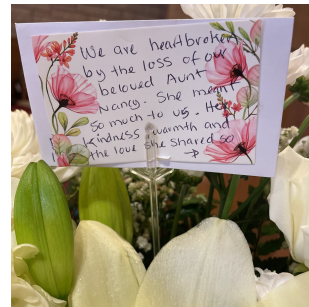 We are heartbroken
by the loss of our
beloved Aunt
Nancy. She meant
so much to us. Her
Kindness, warmth and
the love she shared so